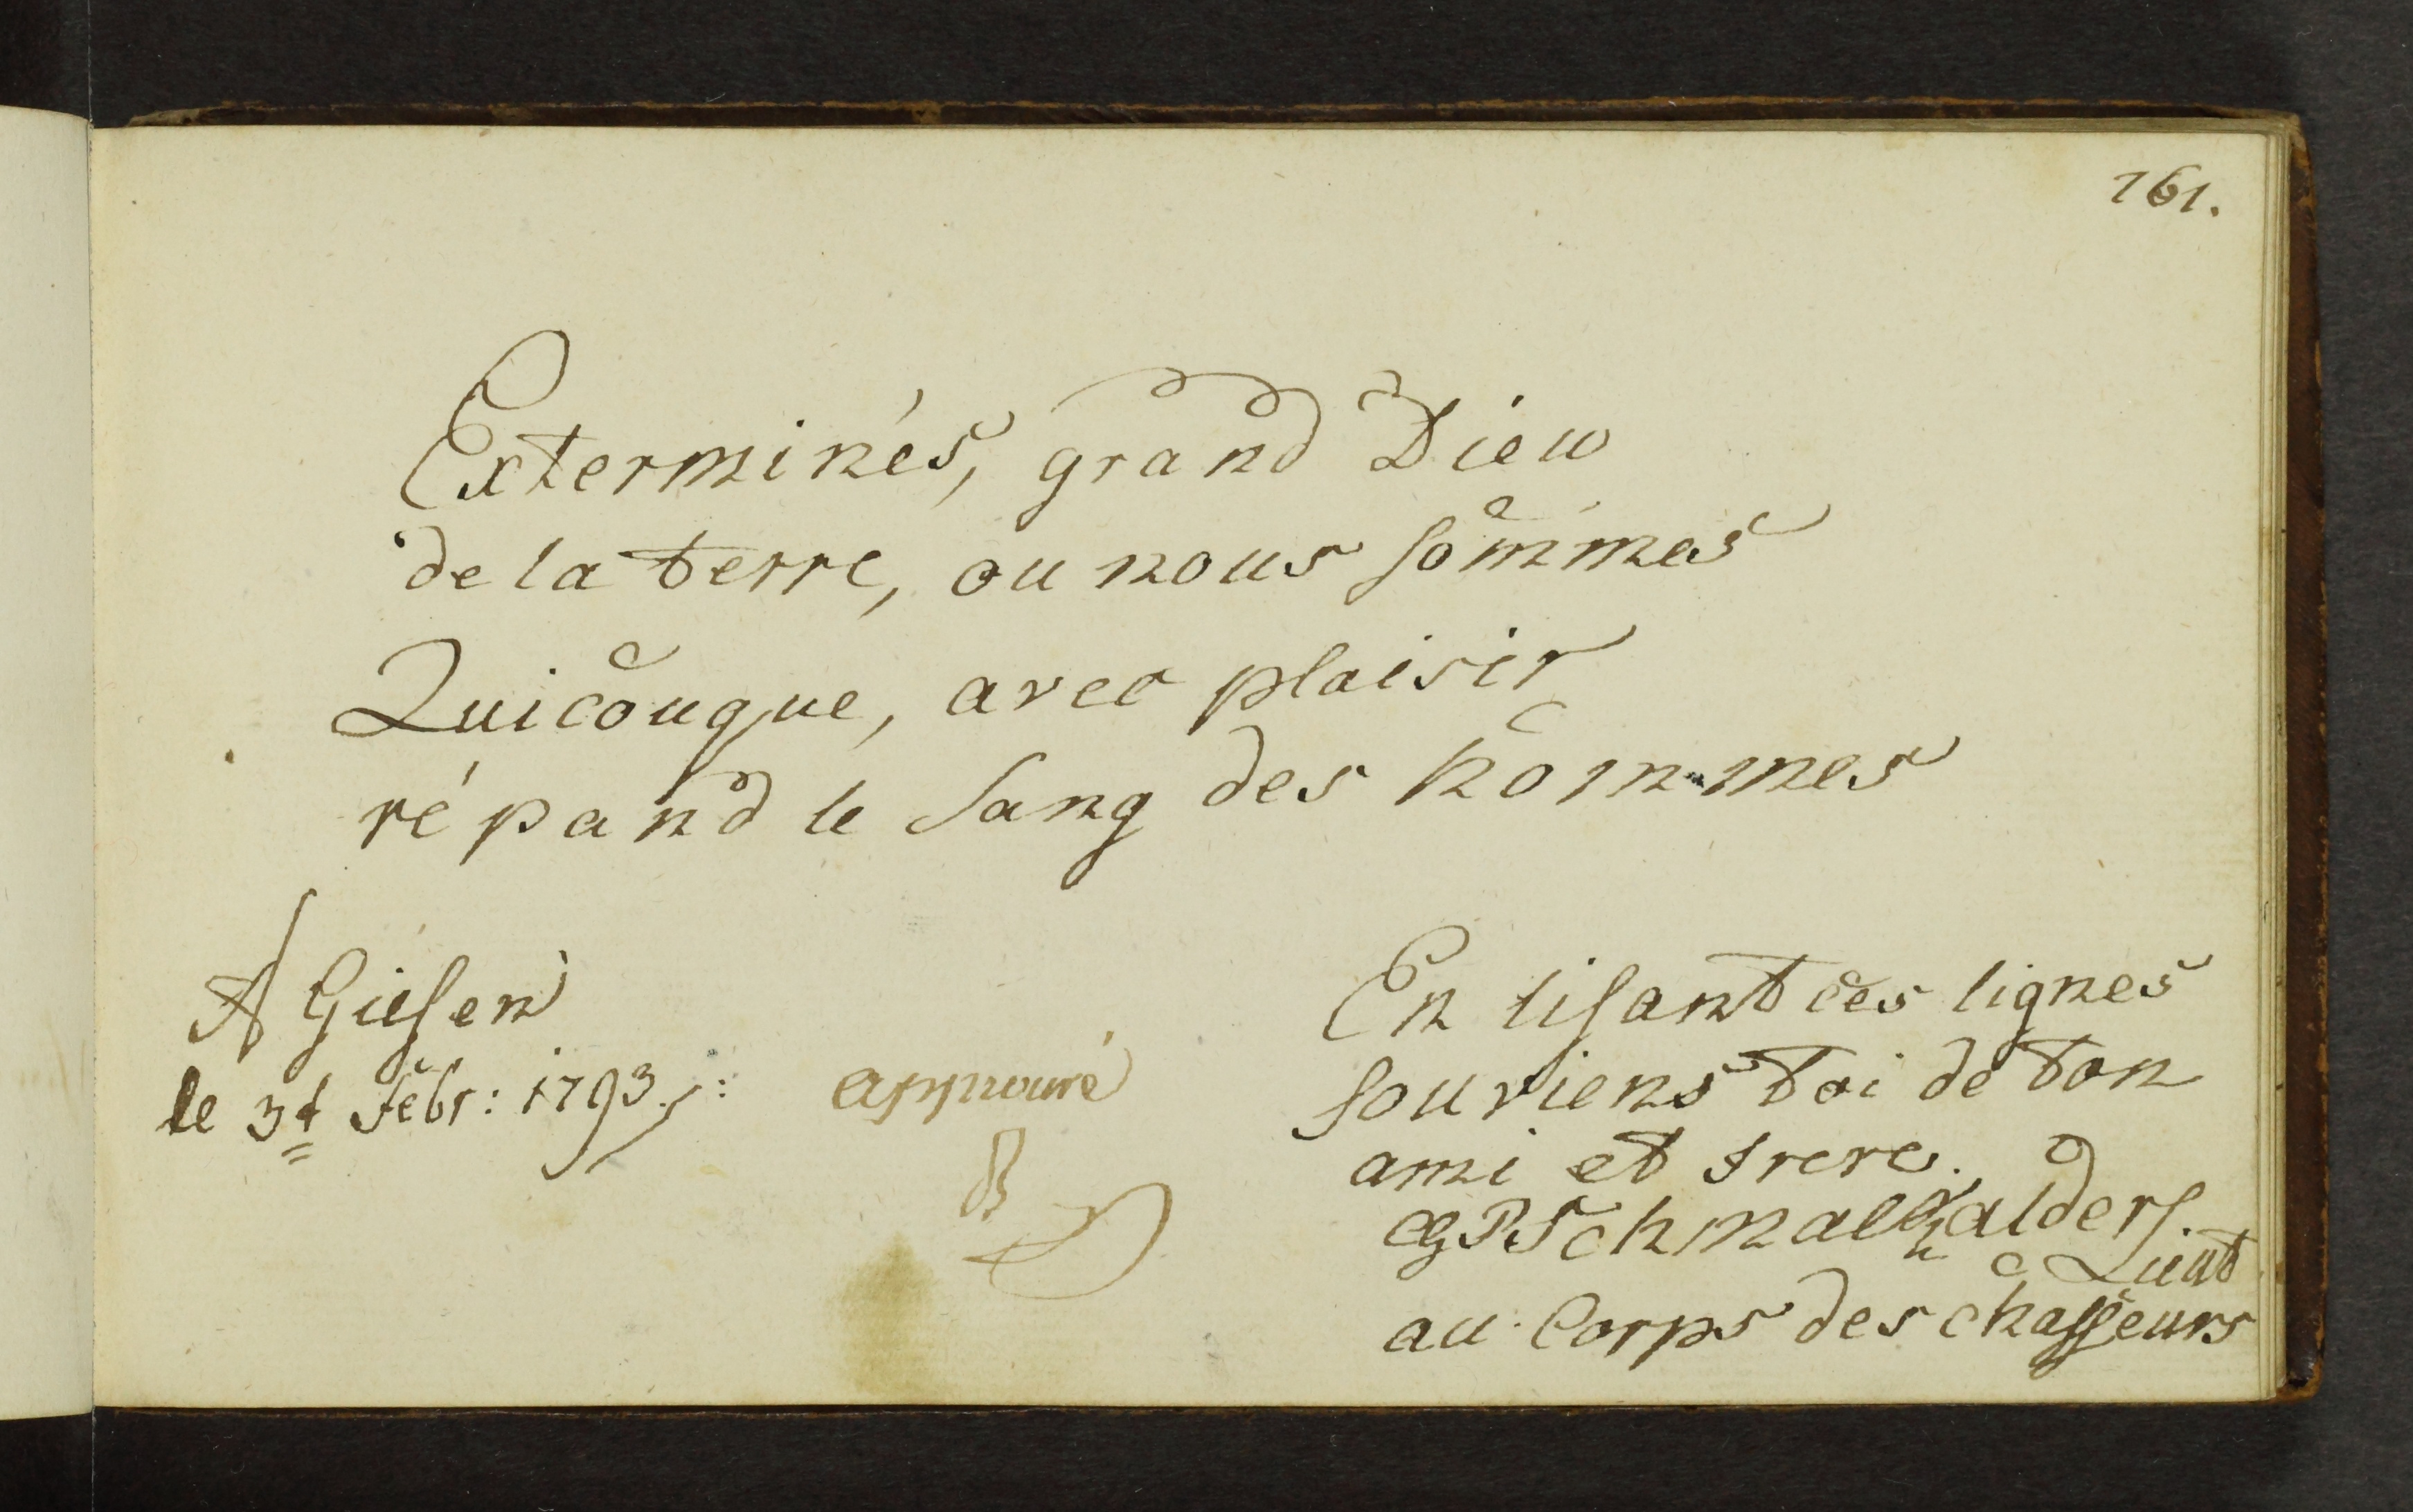 161.
Exterminés, grand Dieu
de la terre, ou nous sommes
Quicouque, avec plaisir
répand le sang des hommes
A Giesen
le 3t Febr: 1793.
approuvé
En lisant ces lignes
souviens toi de ton
ami et frere.
Schmalhalders.
Lieut
au Corps des chasseurs